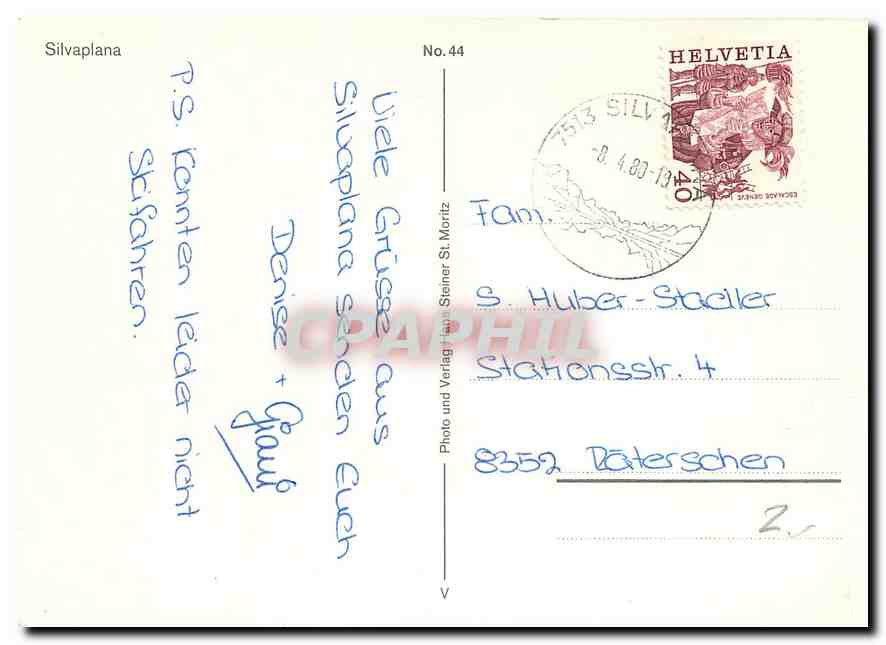 Silvaplana
No. 44
Viele Grüsse aus
Silvaplana senden Euch
Denise +
P.S. Konnten leider nicht
Skifahren.
Photo und Verlag Hans Steiner St. Moritz
V
HELVETIA
40
ESCALADE GENÈVE
7513 SILVAPLANA
-8. 4.80-18
Fam.
S. Huber-Stadler
Stationsstr. 4
8352 Räterschen
2.-
CPAPHIL